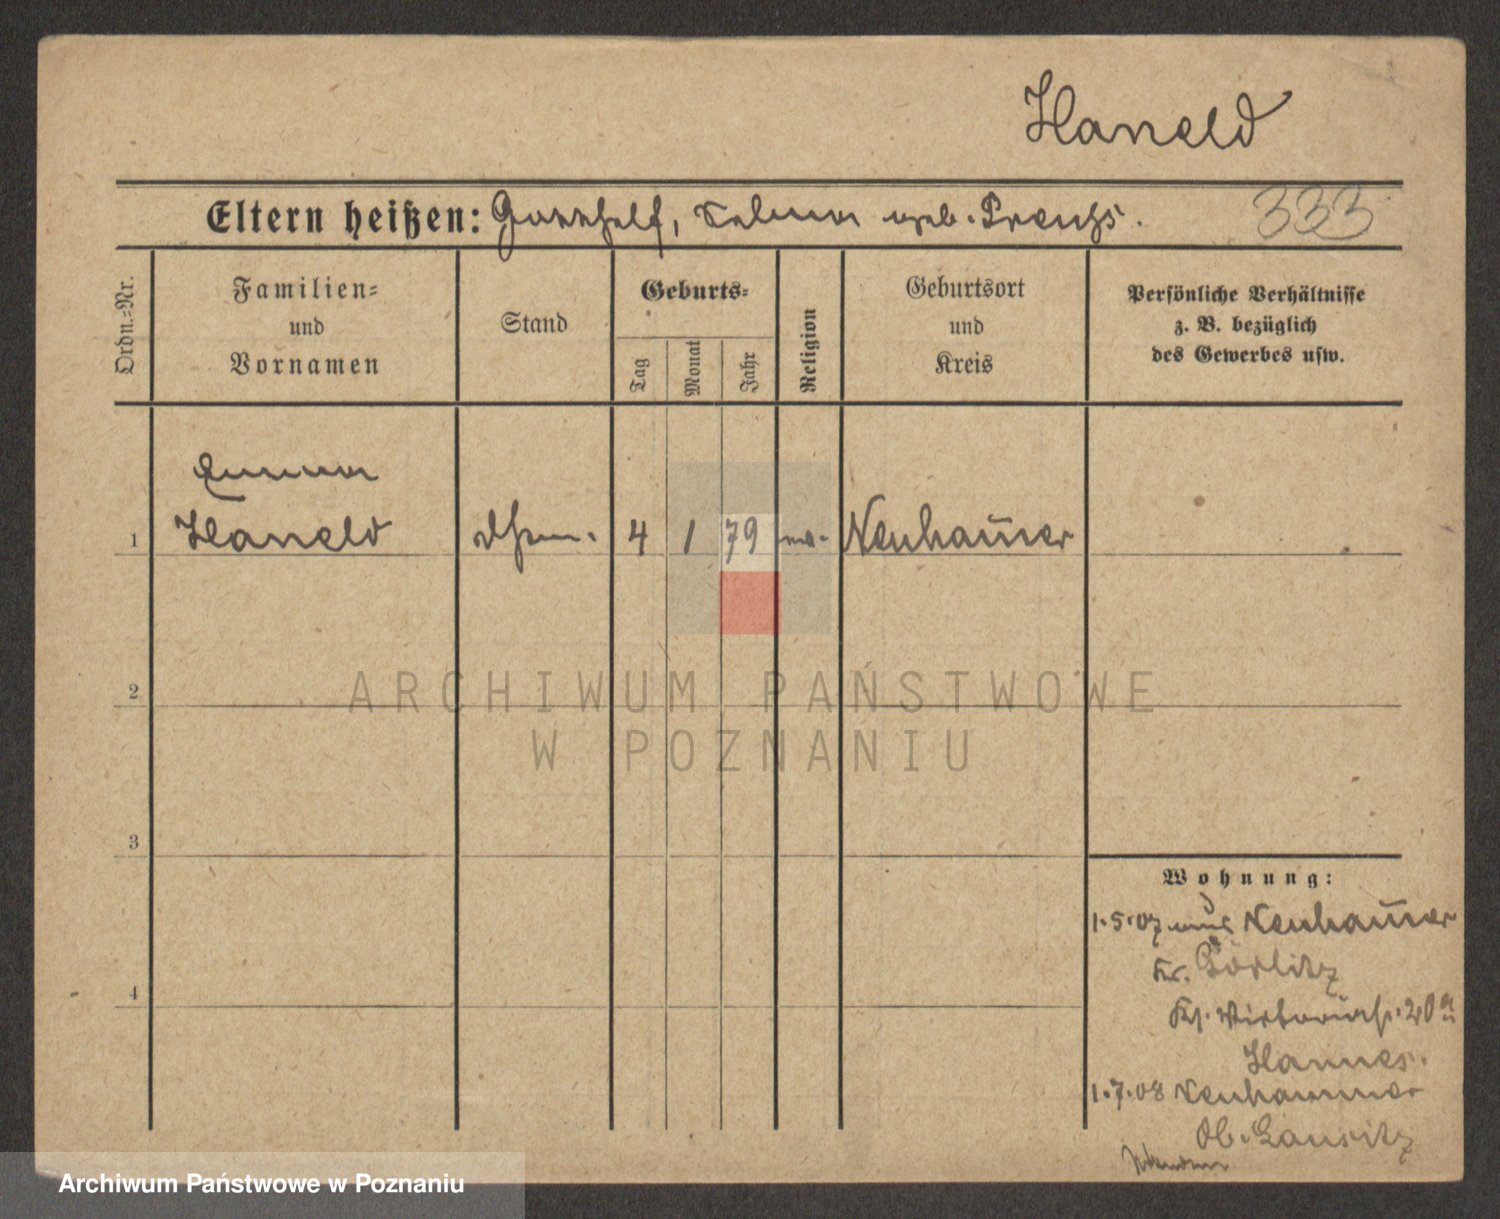 Haneld
Eltern heißen: Gotthelf, Selma geb. Preuhs. 333
Ordn.-Nr.
Familien-
und
Vornamen
Stand
Geburts-
Tag
Monat
Jahr
Religion
Geburtsort
und
Kreis
Persönliche Verhältnisse
z. B. bezüglich
des Gewerbes usw.
Emma
1 Haneld 4 1 79 ev. Neuham̄er
2
ARCHIWUM PAŃSTWOWE
W POZNANIU
3
Wohnung:
1.5.07 aus Neuham̄er
Kr. Görlitz
20
Hannes.
4
1.7.08 Neuhammer
Ob. Lausitz
Archiwum Państwowe w Poznaniu